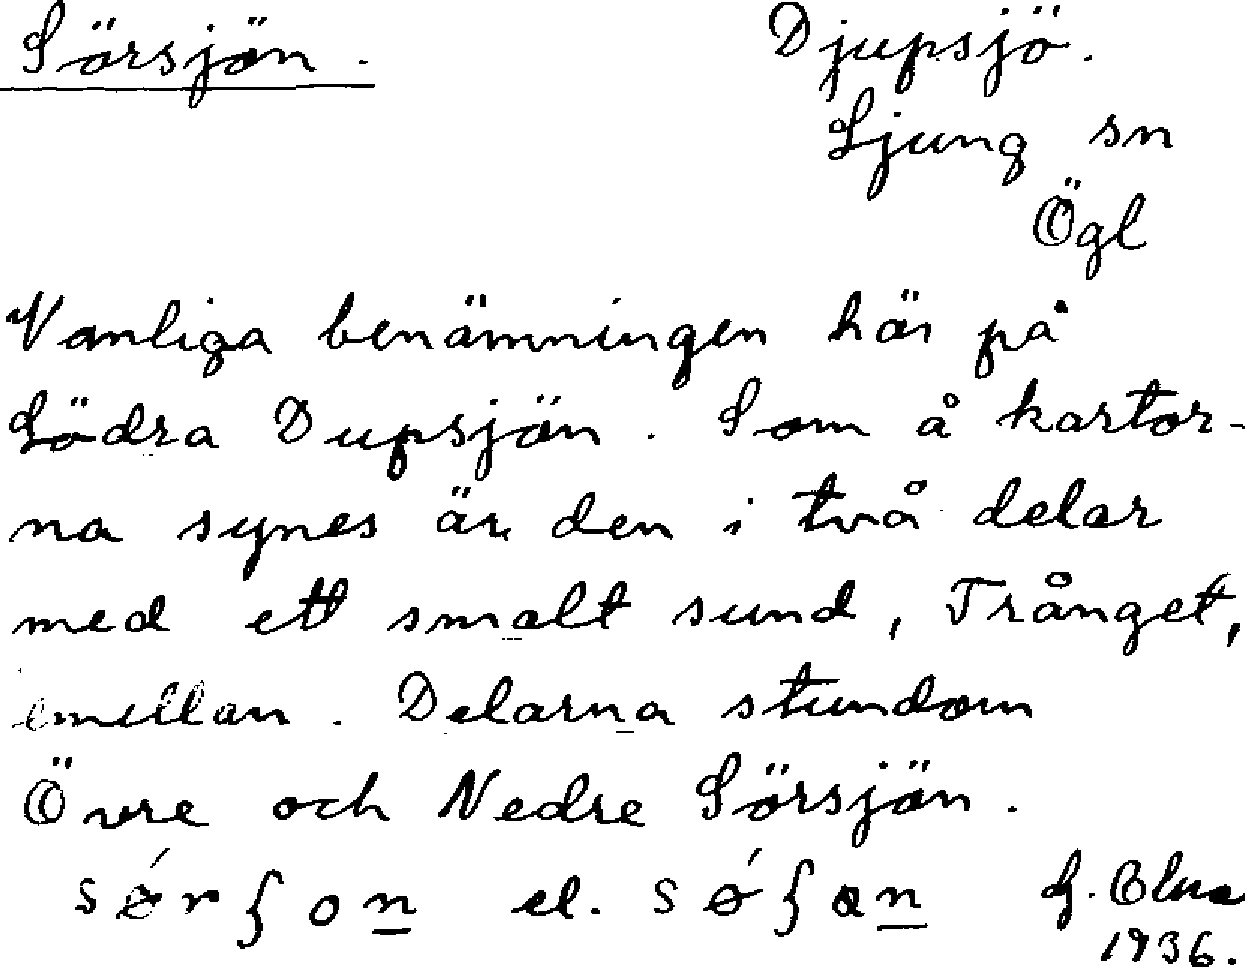 Sörsjön.
Djupsjö.
Ljung sn
Ögl
Vanliga benämningen här på
Södra Dupsjön. Som å kartor-
na synes är den i två delar
med ett smalt sund, Trånget,
emellan. Delarna stundom
Övre och Nedre Sörsjön.
sǿrʃon el. sǿʃon
1936.